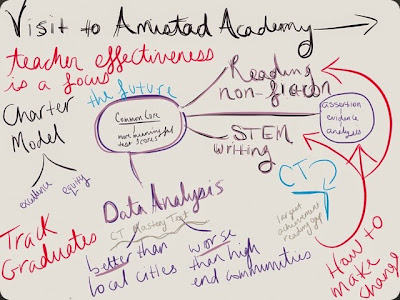 Visit to Amistad Academy
teacher effectiveness
is a focus
the future
Reading
non-fiction
Charter
Model
Common Core
more meaningful
test scores
assertion
evidence
analysis
STEM
writing
excellence
equity
CT
Data Analysis
CT Mastery Test
largest
achievement
reading gap
Track
Graduates
better than
local cities
worse
than high
end communities
How to
make
change